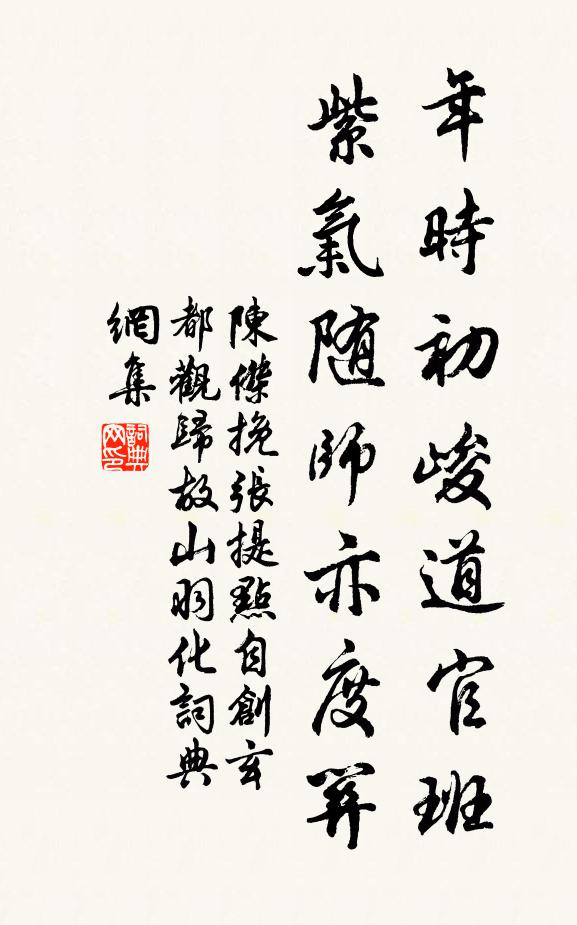 年時初峻道官班
紫氣随師亦度關
陳傑挽張提點自創玄
都觀歸故山羽化詞典
網集
詞典
网印